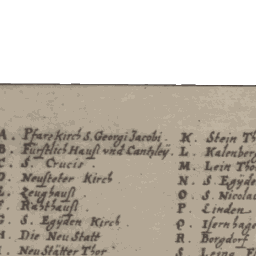 A. Pfarekirch S. Georgi Jacobi.
B. Fürstlich Hauß vnd Cantzleÿ.
C. S. Crucis.
D. Neusteter Kirch
E. Zeughauß
F. Rahthauß
G. S. Egÿden Kirch
H. Die Neu Statt
I. Neu Stätter Thor
K. Stein Th
L. Kalenberg
M. Lein Tho
N. S. Egÿde
O. S. Nicolai
P. Linden
Q. Isernhage
R. Borgdorf